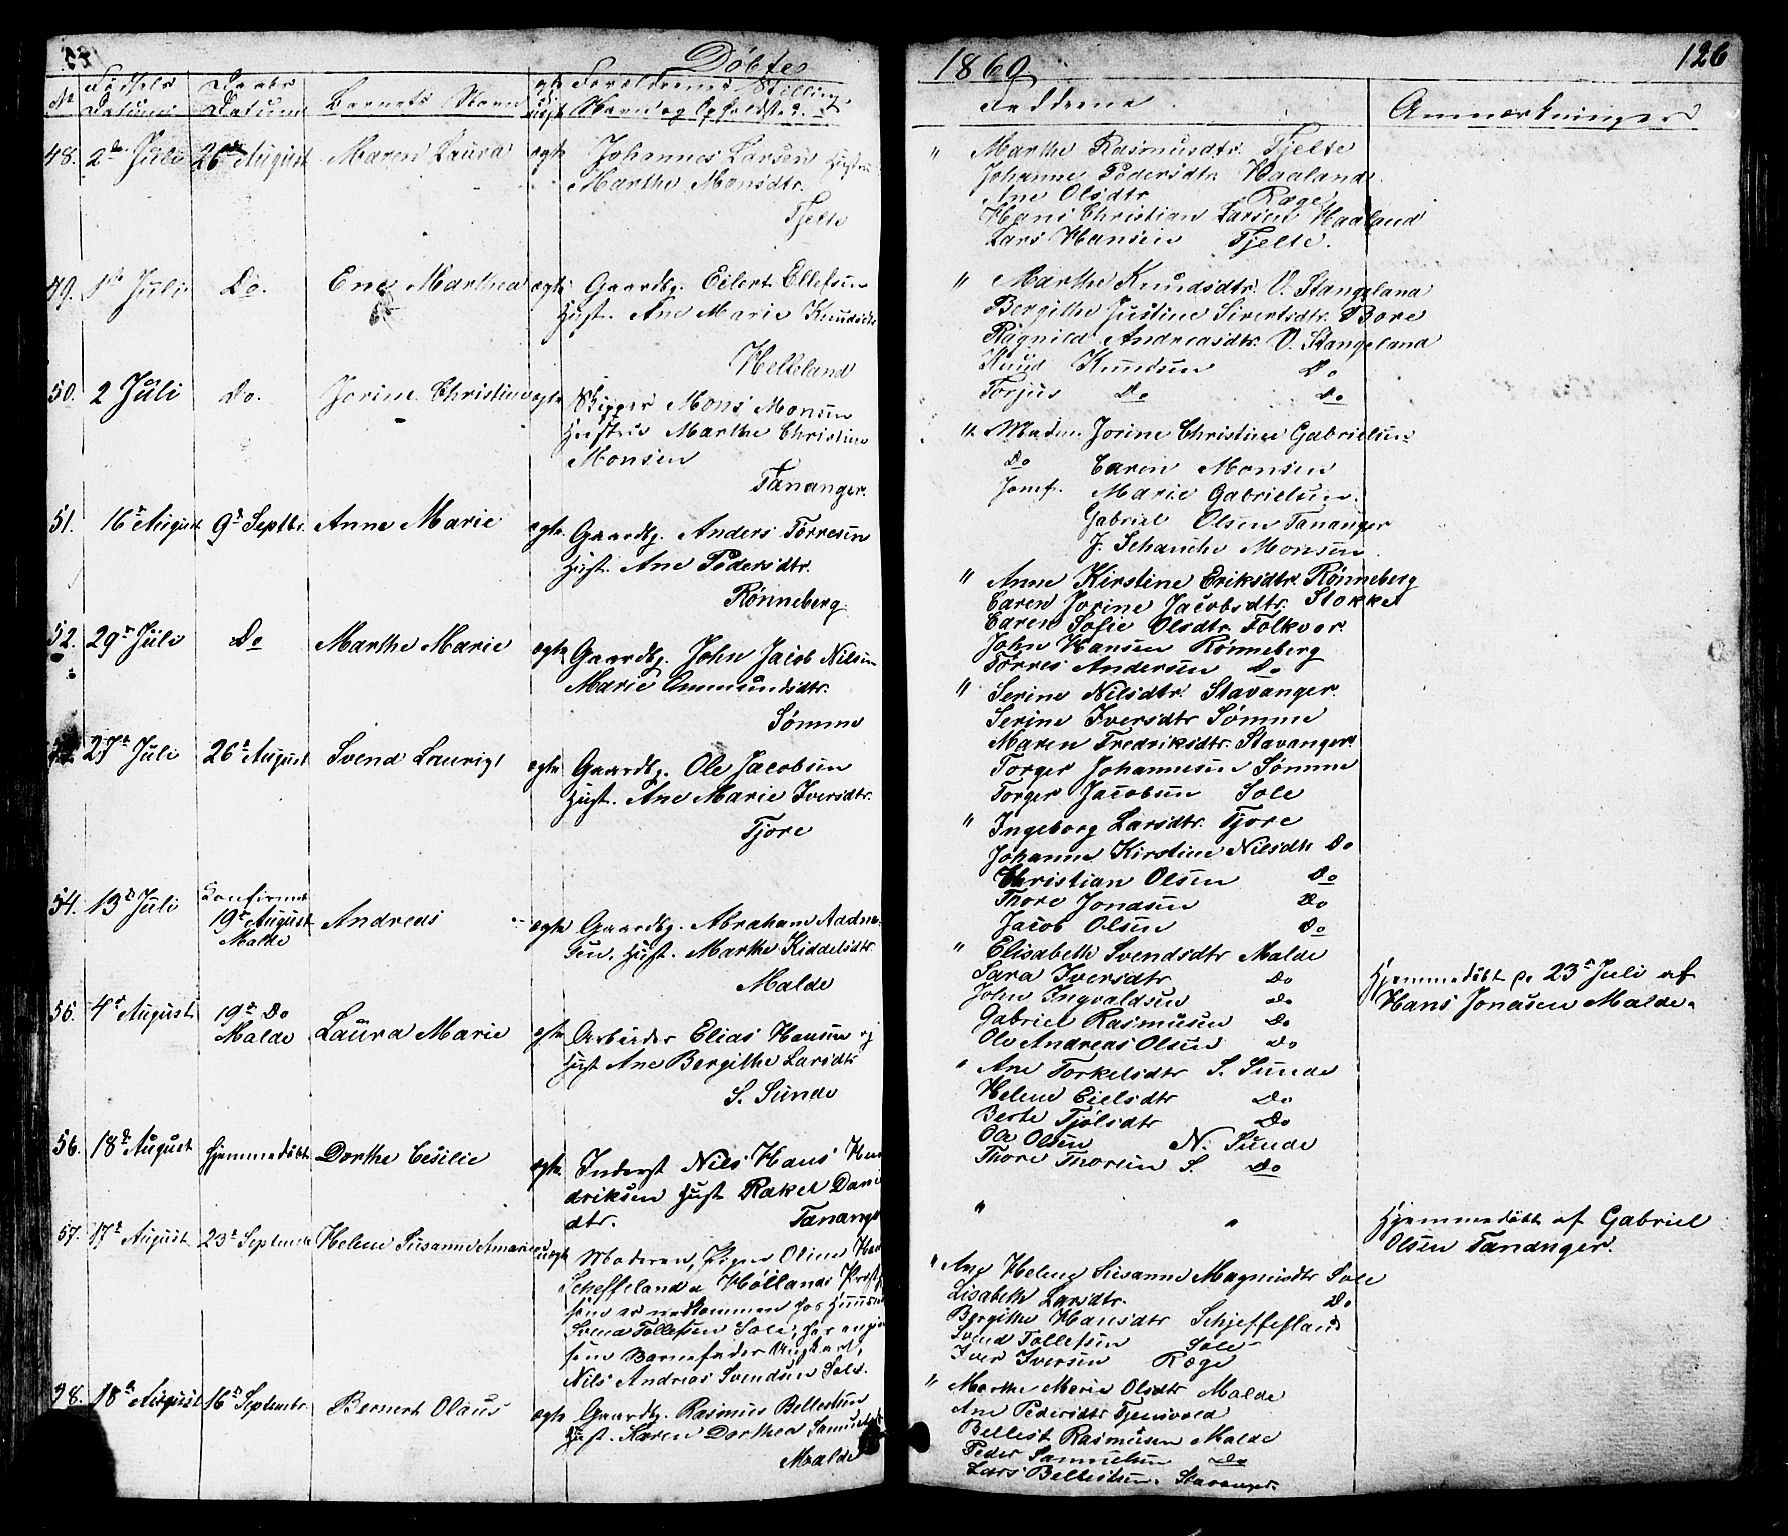 Döbte 1860 126
No Födsels Datum Daabs Datum Barnets Navn Forældrenes Stilling Navn og Opholdsted
Faddere Anmærkninger
48. 2den Juli 26de August Maren Laura ægte Johannes Larsen
Marthe Monsdtr.
Tjelte
" Marthe Rasmusdtr. Tjelte
Johanne Pedersdtr. Haaland
Ane Olsdtr Ræge
Hans Christian Larsen Haaland
Lars Hansen Tjelte.
49. 1st Juli Do. Ene Marthea ægte Gaardbr. Eilert Ellefsen
Hust. Ane Marie Knudsdtr
Helleland
" Marthe Knudsdtr. V. Stangeland
Bergithe Justine Sivertsdtr. Bore
Ragnild Andreasdtr. V. Stangeland
Knud Knudsen Do
Torjus Do Do
50. 2 Juli Do. Jorine Christine ægte Skipper Mons Monsen
Hustru Marthe Christine
Monsen
Tananger.
" Madm. Jorine Christine Gabrielsen
Do Caren Monsen
Jomf. Marie Gabrielsen.
Gabriel Olsen Tananger
J. Schanche Monsen
51. 16de August 9de Septbr. Anne Marie ægte Gaardbr. Anders Torresen
Hust. Ane Pedersdtr.
Rönneberg.
" Anne Kirstine Eriksdtr. Rönneberg
Caren Jorine Jacobsdtr. Stokke
Caren Sofie Olsdtr. Tolkvor.
John Hansen Rönneberg
Torres Andersen Do
52. 29de Juli Do Marthe Marie ægte Gaardbr. John Jacob Nilsen
Marie Ommundsdtr.
Sömme
" Serine Nilsdtr. Stavanger.
Serine Iversdtr Sömme
Maren Fredriksdtr. Stavanger.
Torger Johannesen Sömme
Torger Jacobsen Sole
27de Juli 26de August Svend Laurits ægte Gaardbr. Ole Jacobsen
Hust. Ane Marie Iversdtr.
Tjore
" Ingeborg Larsdtr. Tjore
Johanne Kirstine Nilsdtr Do
Christian Olsen Do
Thore Jonasen Do
Jacob Olsen Do
54. 13de Juli Confirmet
19de August
Malde Andreas ægte Gaardbr. Abraham Aadne-
sen, Hust. Marthe Kiddelsdtr.
Malde
" Elisabeth Svendsdtr Malde
Sara Iversdtr Do
John Ingvaldsen Do
Gabriel Rasmusen Do
Ole Andreas Olsen Do
Hjemmedöbt d. 23de Juli af
Hans Jonasen Malde.
4de August 19de Do
Malde Laura Marie ægte Arbeider Elias Hansen og
Hust Ane Bergithe Larsdtr
S. Sunde
" Ane Torkelsdtr S. Sunde
Helene Eielsdtr Do
Berte Tjölsdtr Do
Ole Olsen N. Sunde
Thore Thorsen S. Do
56. 18de August Hjemmedöbt Dorthe Cesilie ægte Inderst Nils Hans Hen
driksen Hust Rakel Dani
dtr. Tanange
" "
Hjemmedöbt af Gabriel
Olsen Tananger.
57. 17de August 23de Septembr Helene Susanne Amarie uægte Moderen, Pigen Oline Han
Scheffeland a Höilands Præst
som er nedkommen hos Huusm
Svend Tollefsen Sole, har angi
som Barnefader Ungkarl,
Nils Andreas Svendsen Sole.
" Ane Helene Susanne Magnusdtr Sole
Lisabeth Larsdtr. Do
Bergithe Hansdtr Schjeffeland
Svend Tollefsen Sole
Iver Iversen Ræge
18de August 16de Septembr Bernert Olaus ægte Gaardbr. Rasmus Bellestsen
Hust. Karen Dorthea Samuelsdtr
Malde
" Marthe Marie Olsdtr Malde
Ane Pedersdtr Tjensvold
Bellest Rasmusen Malde
Peder Samuelsen Do
Lars Bellestsen. Stavanger.